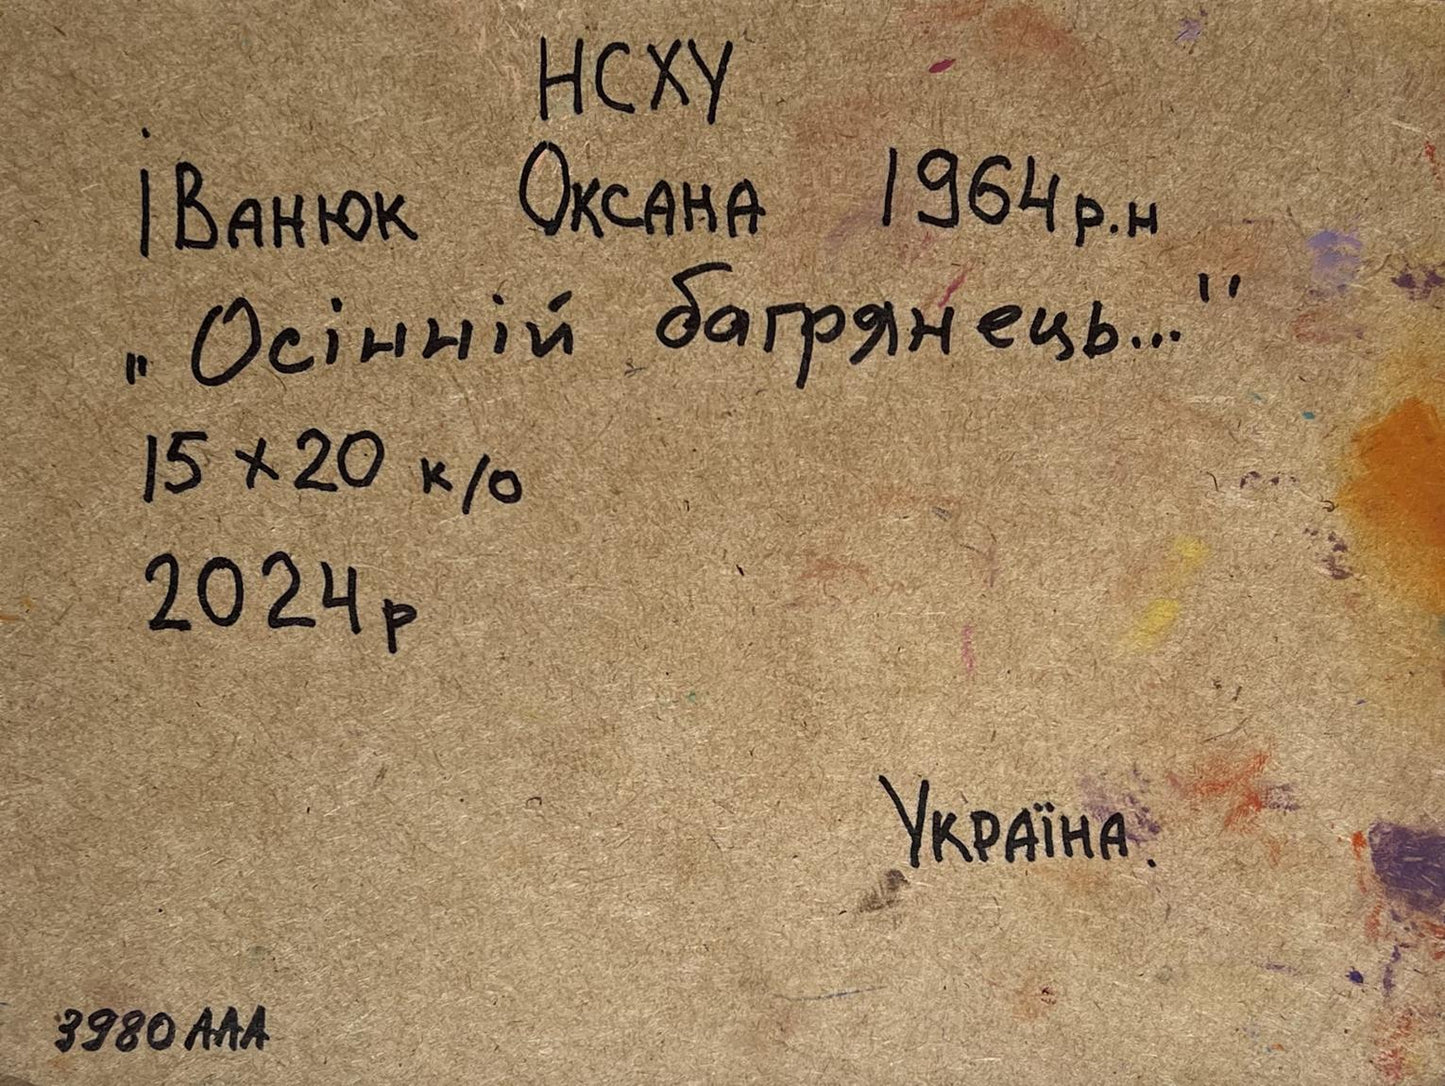 НСХУ
Іванюк Оксана 1964 р.н
„Осінній багрянець..."
15 x 20 к/о
2024 р
Україна.
3980 ААА